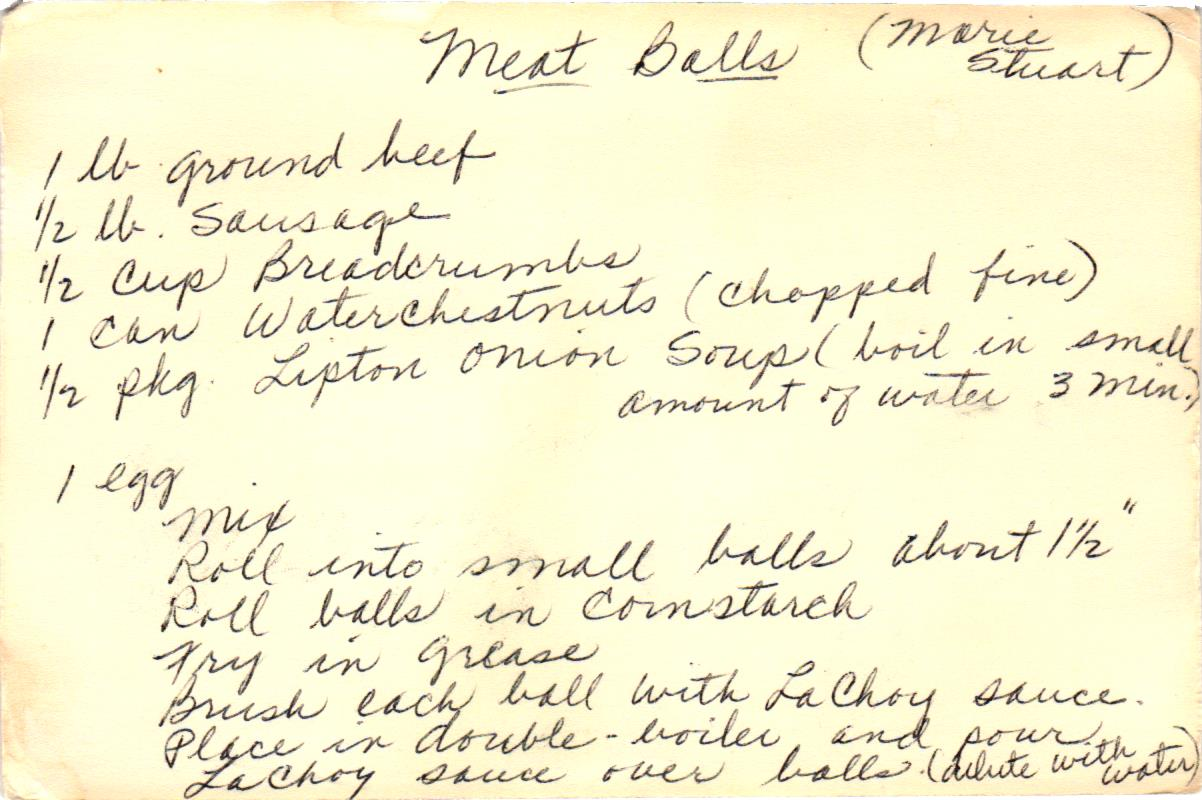 Meat Balls (Marie
Stuart)
1 lb ground beef
1/2 lb. Sausage
1/2 Cup Breadcrumbs
1 can Waterchestnuts (chopped fine)
1/2 pkg. Lipton Onion Soup (boil in small
amount of water 3 min.)
1 egg
Mix
Roll into small balls about 1 1/2"
Roll balls in Cornstarch
Fry in Grease
Brush each ball with LaChoy sauce.
Place in double-boiler and pour
LaChoy sauce over balls. (dilute with
water)